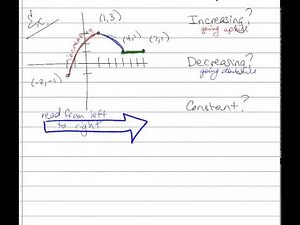 Ex.
(1,3)
Increasing?
going uphill
increasing
(4,1)
(7,1)
(-2,-1)
Decreasing?
going downhill
read from left
to right
Constant?